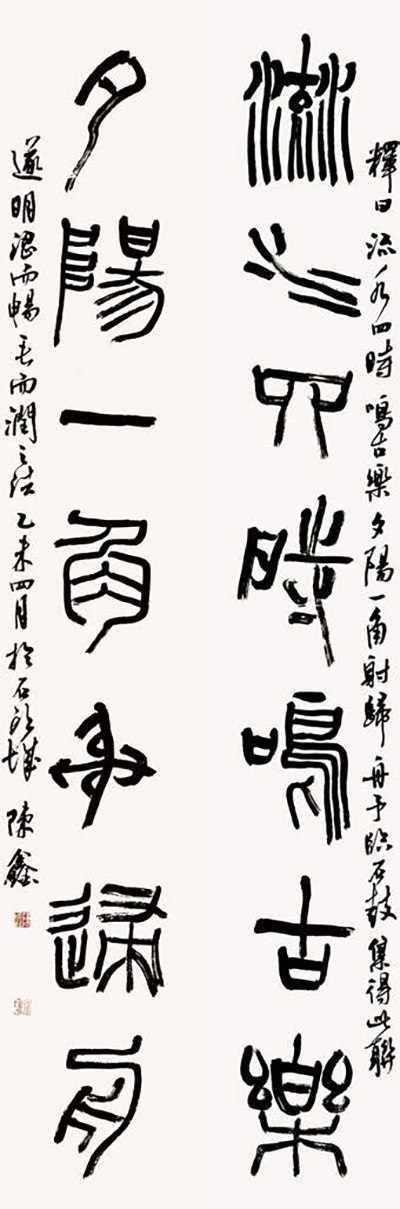 釋曰流水四時鳴古樂夕陽一角射歸舟予臨石鼓集得此聯
流水四時鳴古樂
夕陽一角射歸舟
遂明而暢而潤之乙未四月於石頭城陳鑫